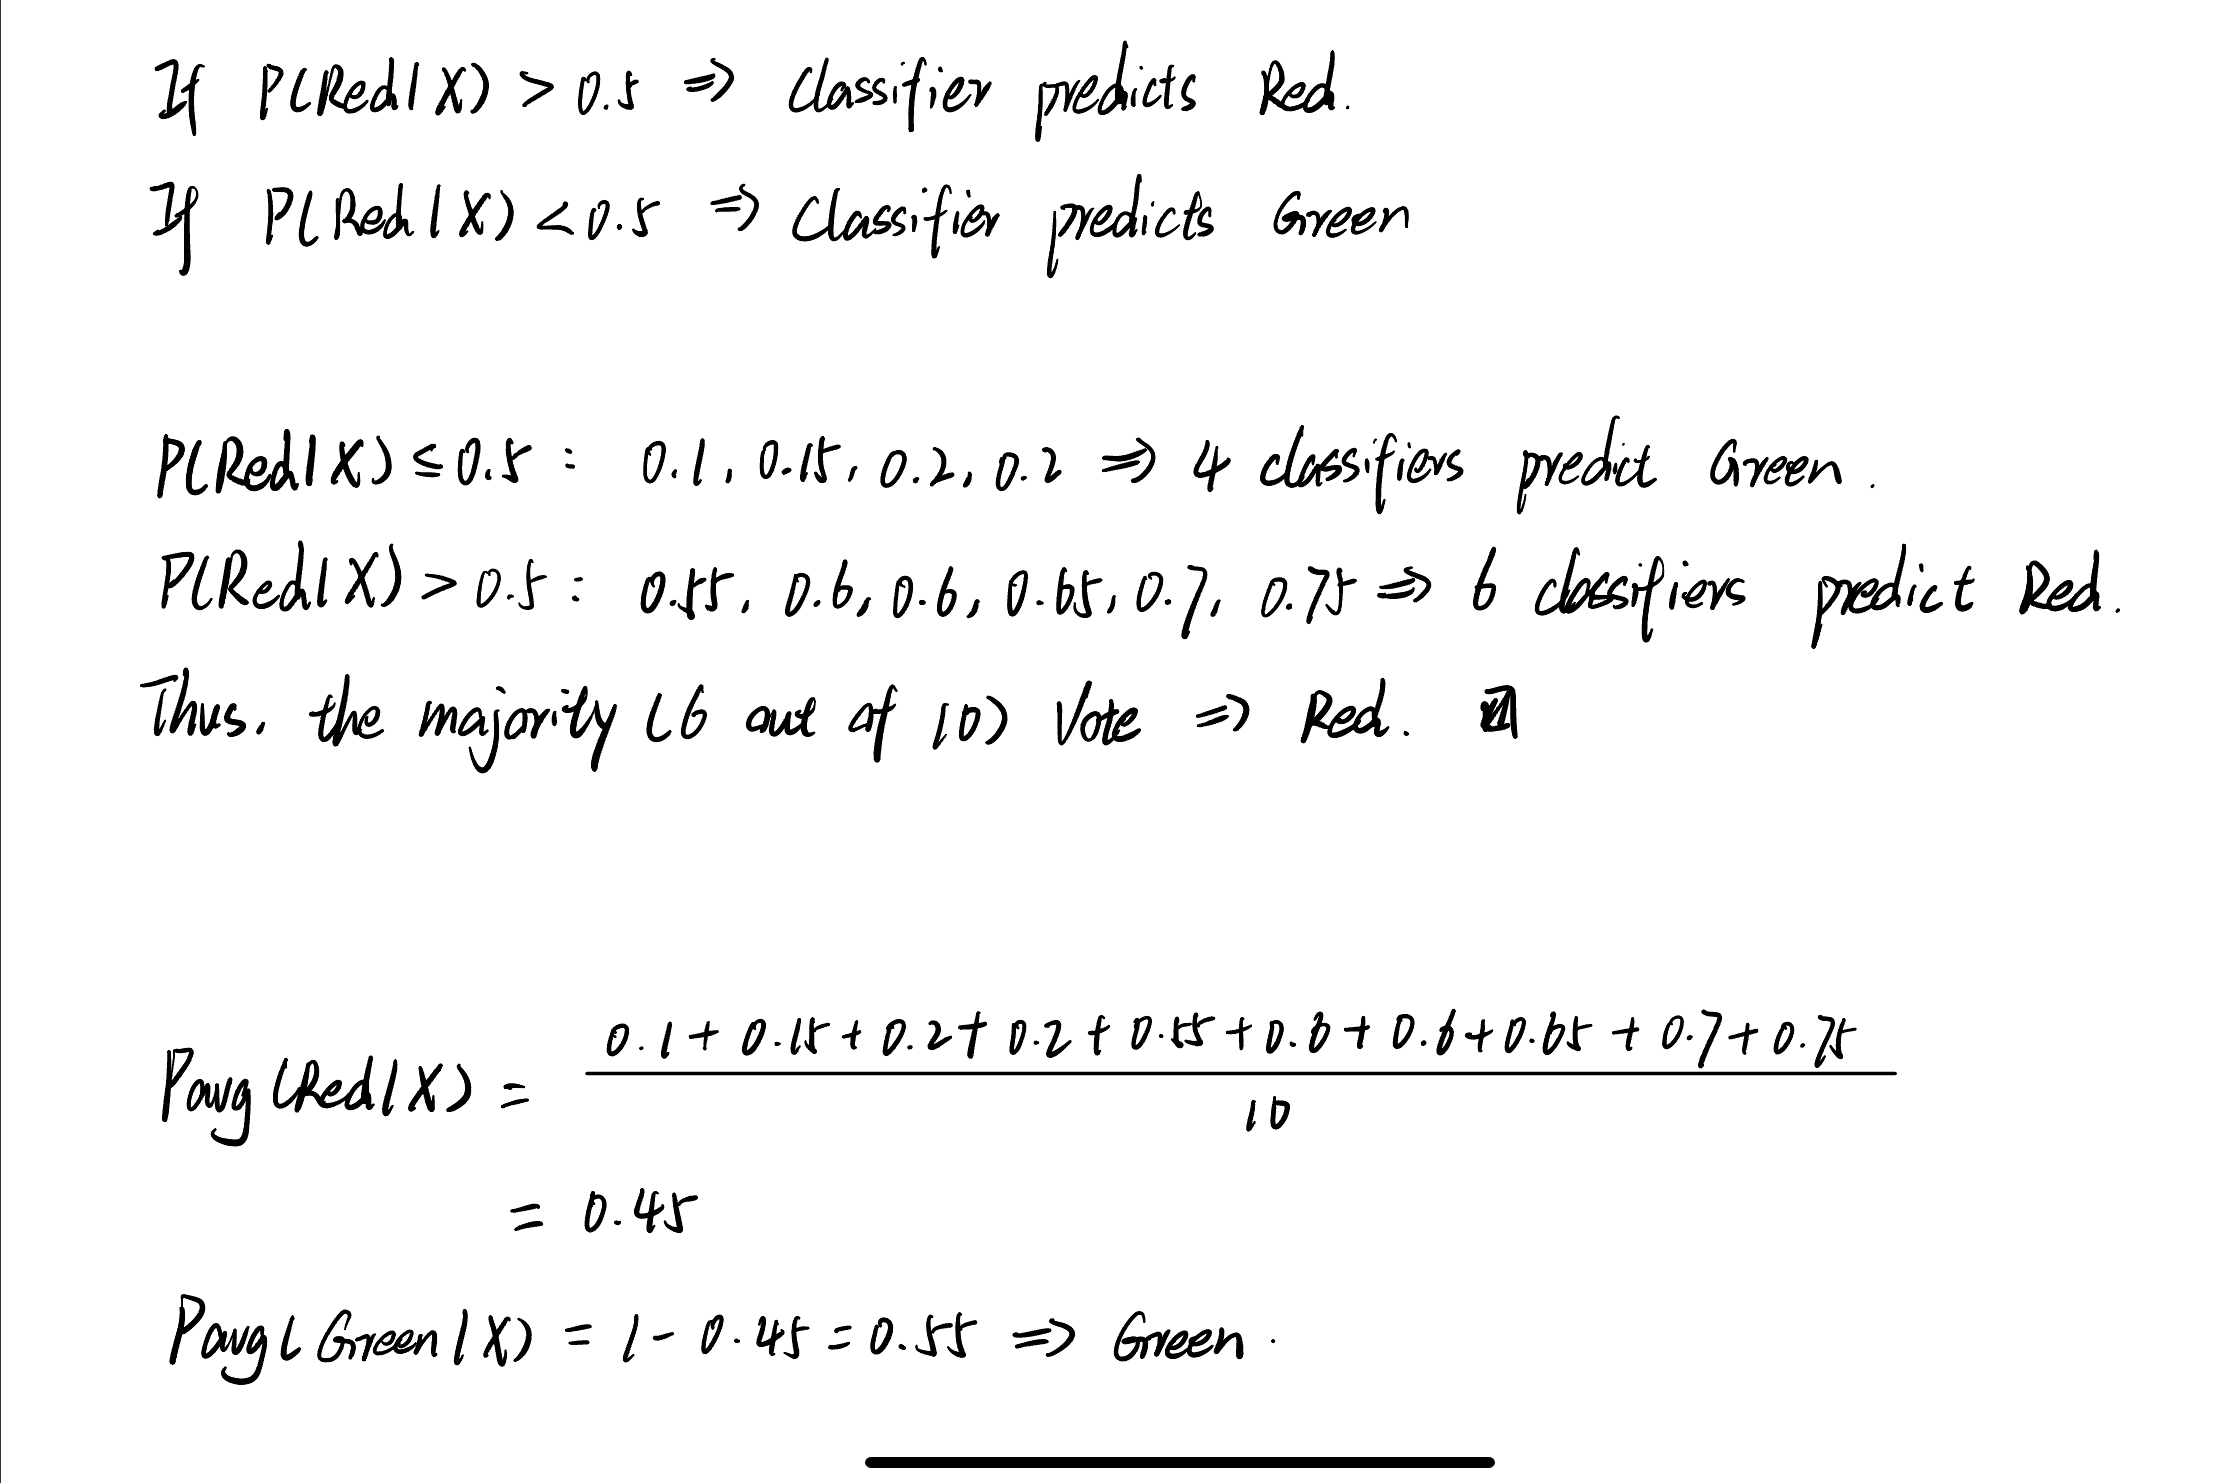 If P(Red|X) > 0.5 ⇒ Classifier predicts Red.
If P(Red|X) < 0.5 ⇒ Classifier predicts Green
P(Red|X) ≤ 0.5 : 0.1, 0.15, 0.2, 0.2 ⇒ 4 classifiers predict Green.
P(Red|X) > 0.5 : 0.55, 0.6, 0.6, 0.65, 0.7, 0.75 ⇒ 6 classifiers predict Red.
Thus, the majority (6 out of 10) Vote ⇒ Red.
0.1 + 0.15 + 0.2 + 0.2 + 0.55 + 0.6 + 0.6 + 0.65 + 0.7 + 0.75
Pavg (Red|X) =
10
= 0.45
Pavg (Green|X) = 1 - 0.45 = 0.55 ⇒ Green.